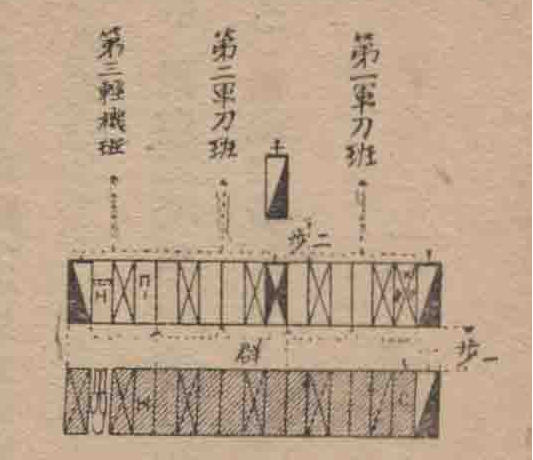 第一軍刀班
第二軍刀班
第三輕機班
步二
群
步一